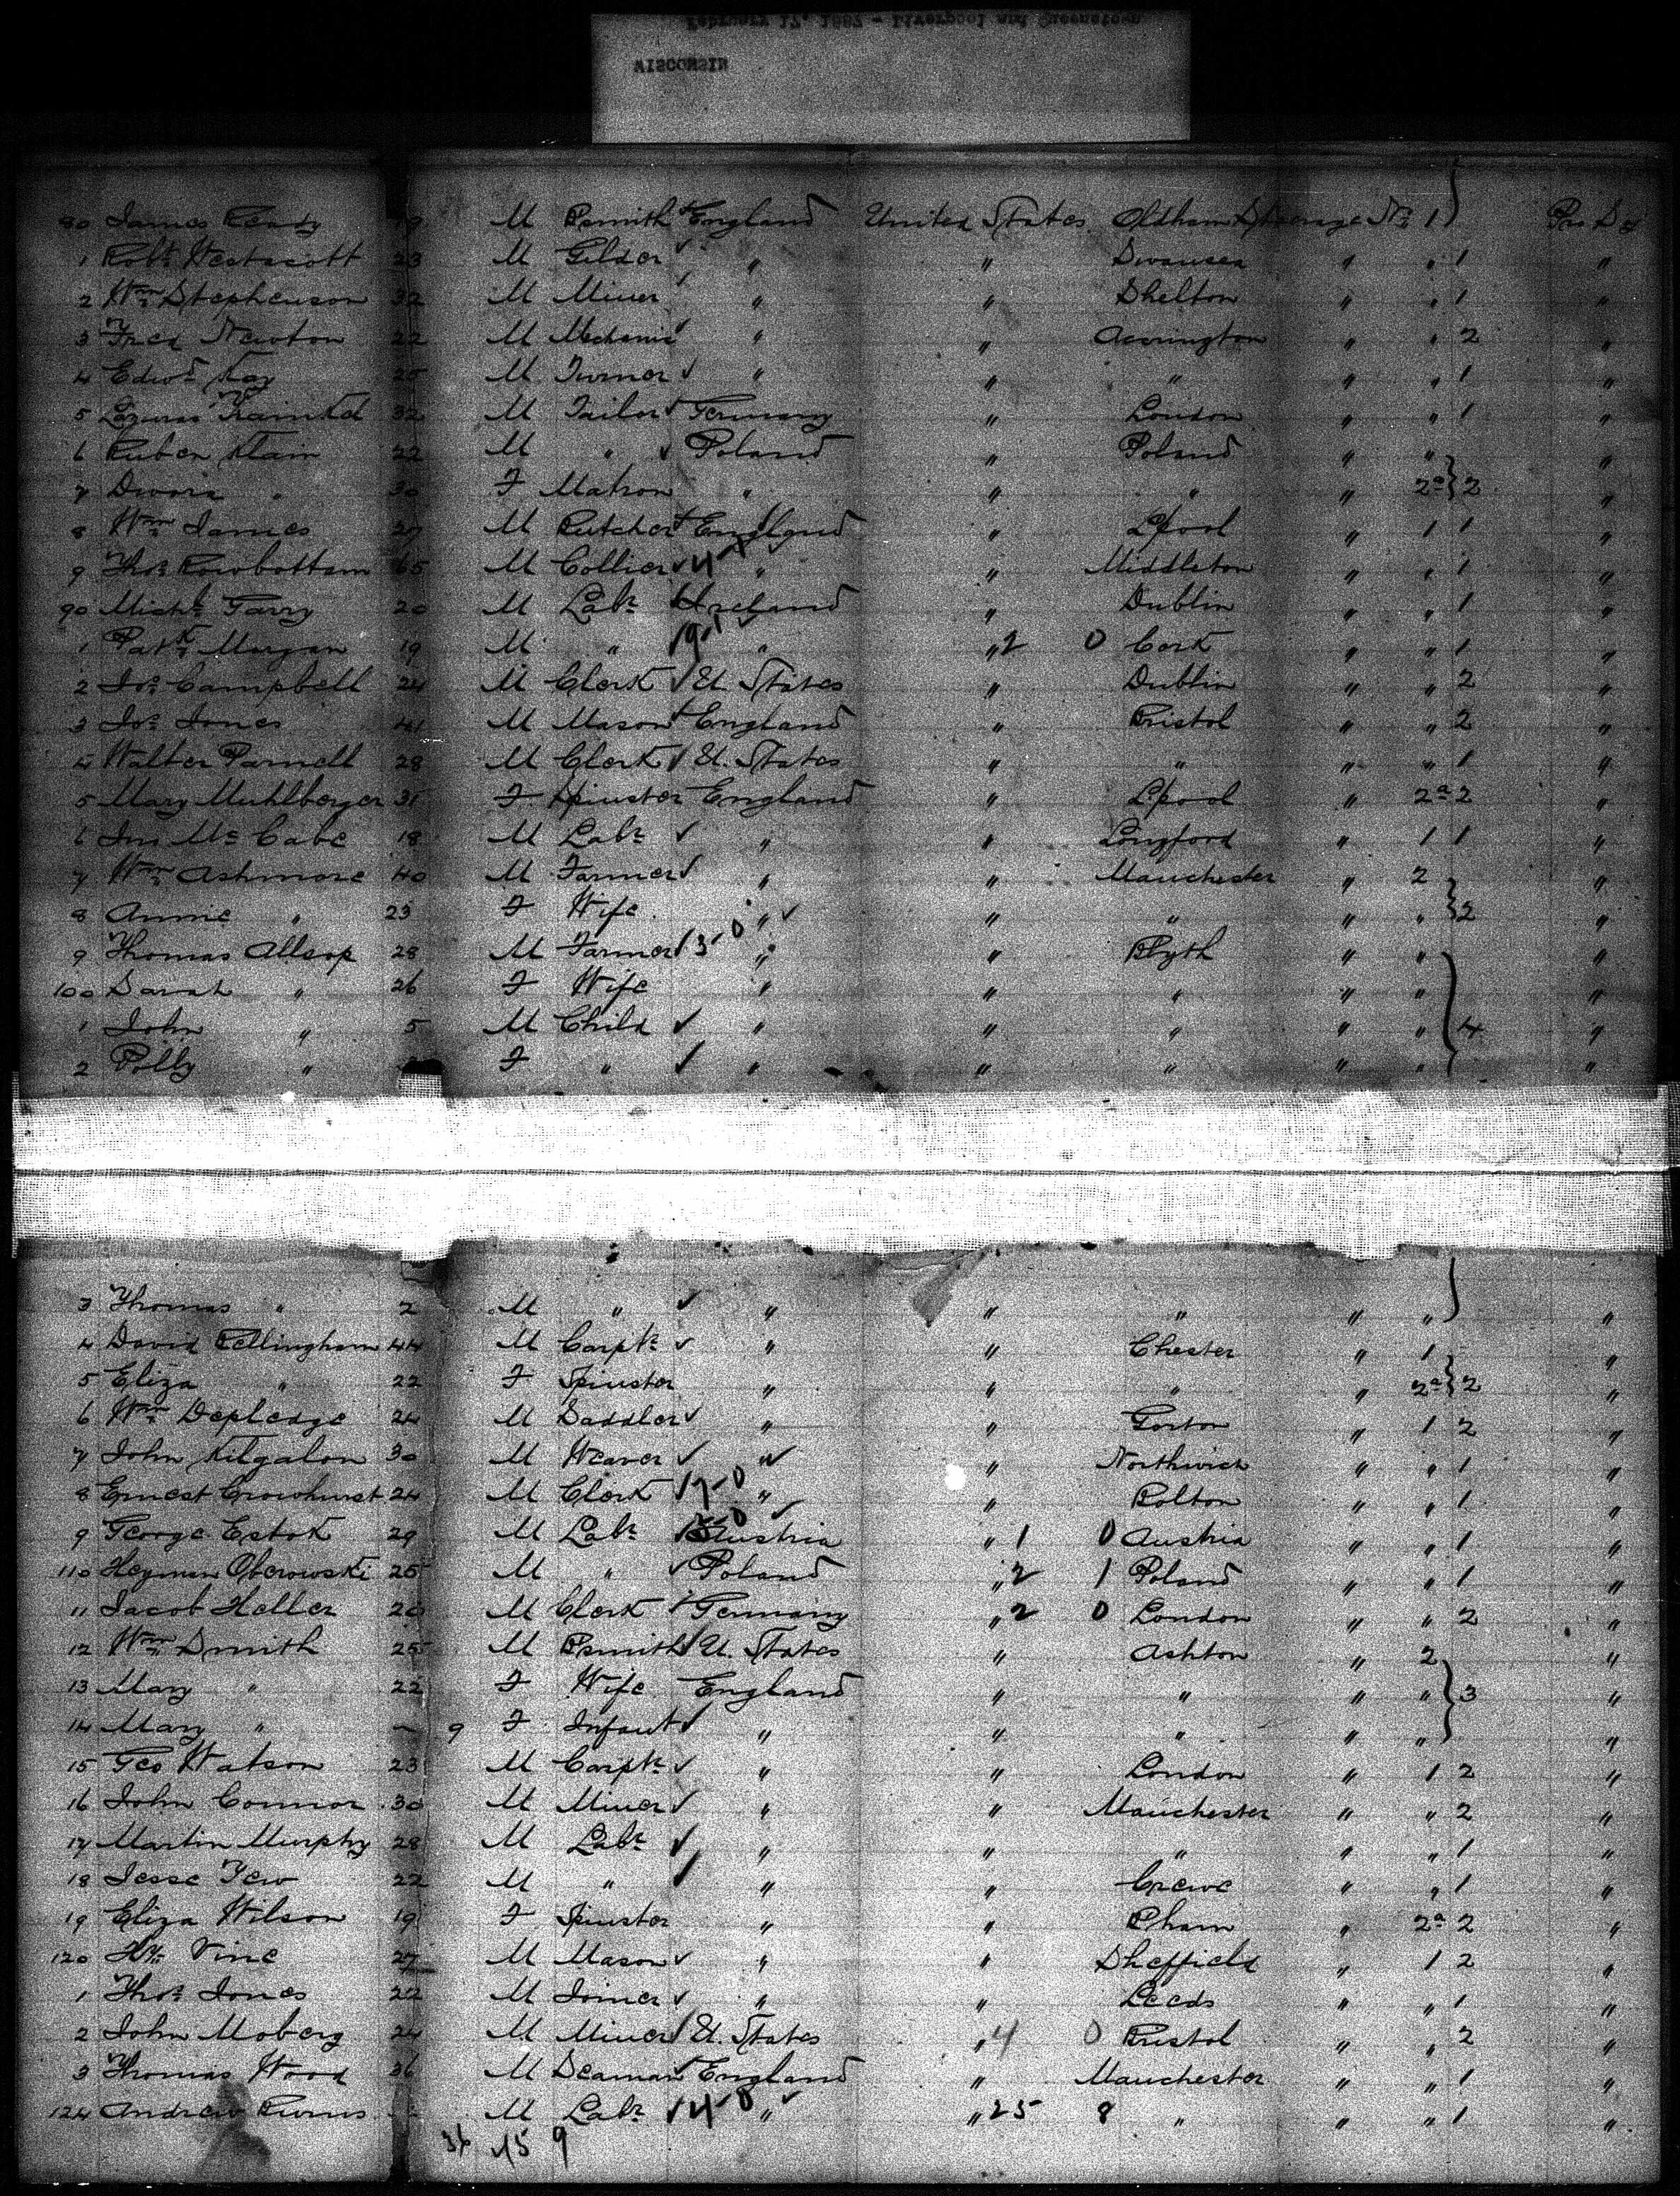 February 17, 1887 - Liverpool and Queenstown
WISCONSIN
80 James Ready 19 M Bsmith England United States Oldham Steerage No 1 Pro Sd
1 Robt Westacott 23 M Gilder " " Swansea " " 1 "
2 Wm Stephenson 32 M Miner " " Shelton " " 1 "
3 Fred Newton 22 M Mechanic " " Accrington " " 2 "
4 Edwd Kay 25 M Turner " " " " " 1 "
5 Lazarus 32 M Tailor Germany " London " " 1 "
6 Ruben Klain 22 M " Poland " Poland " " "
7 Dwora " 30 F Matron " " " " 2a 2 "
8 Wm James 27 M Butcher England " Lpool " 1 1 "
9 Thos Rowbottom 65 M Collier " " Middleton " " 1 "
90 Michl Garry 20 M Labr Ireland " Dublin " " 1 "
1 Patk Morgan 19 M " " " 2 0 Cork " " 1 "
2 Jos Campbell 24 M Clerk U. States " Dublin " " 2 "
3 Jos Jones 41 M Mason England " Bristol " " 2 "
4 Walter Parnell 28 M Clerk U. States " " " " 1 "
5 Mary Muhlberger 31 F Spinster England " Lpool " 2a 2 "
6 Jno Mc Cabe 18 M Labr " " Longford " 1 1 "
7 Wm Ashmore 40 M Farmer " " Manchester " 2 "
8 Annie " 23 F Wife " " " " " 2 "
9 Thomas Allsop 28 M Farmer 3-0 " " Blyth " " "
100 Sarah " 26 F Wife " " " " " "
1 John " 5 M Child " " " " " 4 "
2 Polly " F " " " " " " "
3 Thomas " 2 M " " " " " " "
4 David Bellingham 44 M Carptr " " Chester " 1 "
5 Eliza " 22 F Spinster " " " " 2a 2 "
6 Wm Depledge 24 M Saddler " " Gorton " 1 2 "
7 John Kilgalon 30 M Weaver " " Northwich " " 1 "
8 Ernest Crowhurst 24 M Clerk " " Bolton " " 1 "
9 George Estok 29 M Labr Austria " 1 0 Austria " " 1 "
110 Heyman Oberowski 25 M " Poland " 2 1 Poland " " 1 "
11 Jacob Heller 26 M Clerk Germany " 2 0 London " " 2 "
12 Wm Smith 25 M Bsmith U. States " Ashton " 2 "
13 Mary " 22 F Wife England " " " " 3 "
14 Mary " - 9 F Infant " " " " " "
15 Geo Watson 23 M Carptr " " London " 1 2 "
16 John Connor 30 M Miner " " Manchester " " 2 "
17 Martin Murphy 28 M Labr " " " " " 1 "
18 Jesse Yew 22 M " " " Crewe " " 1 "
19 Eliza Wilson 19 F Spinster " " Bham " 2a 2 "
120 Hy Vine 27 M Mason " " Sheffield " 1 2 "
1 Thos Jones 22 M Joiner " " Leeds " " 1 "
2 John Moberg 24 M Miner U. States " 4 0 Bristol " " 2 "
3 Thomas Wood 36 M Seaman England " Manchester " " 1 "
124 Andrew Burns M Labr 4-0 " " 25 8 " " " 1 "
36 15 9